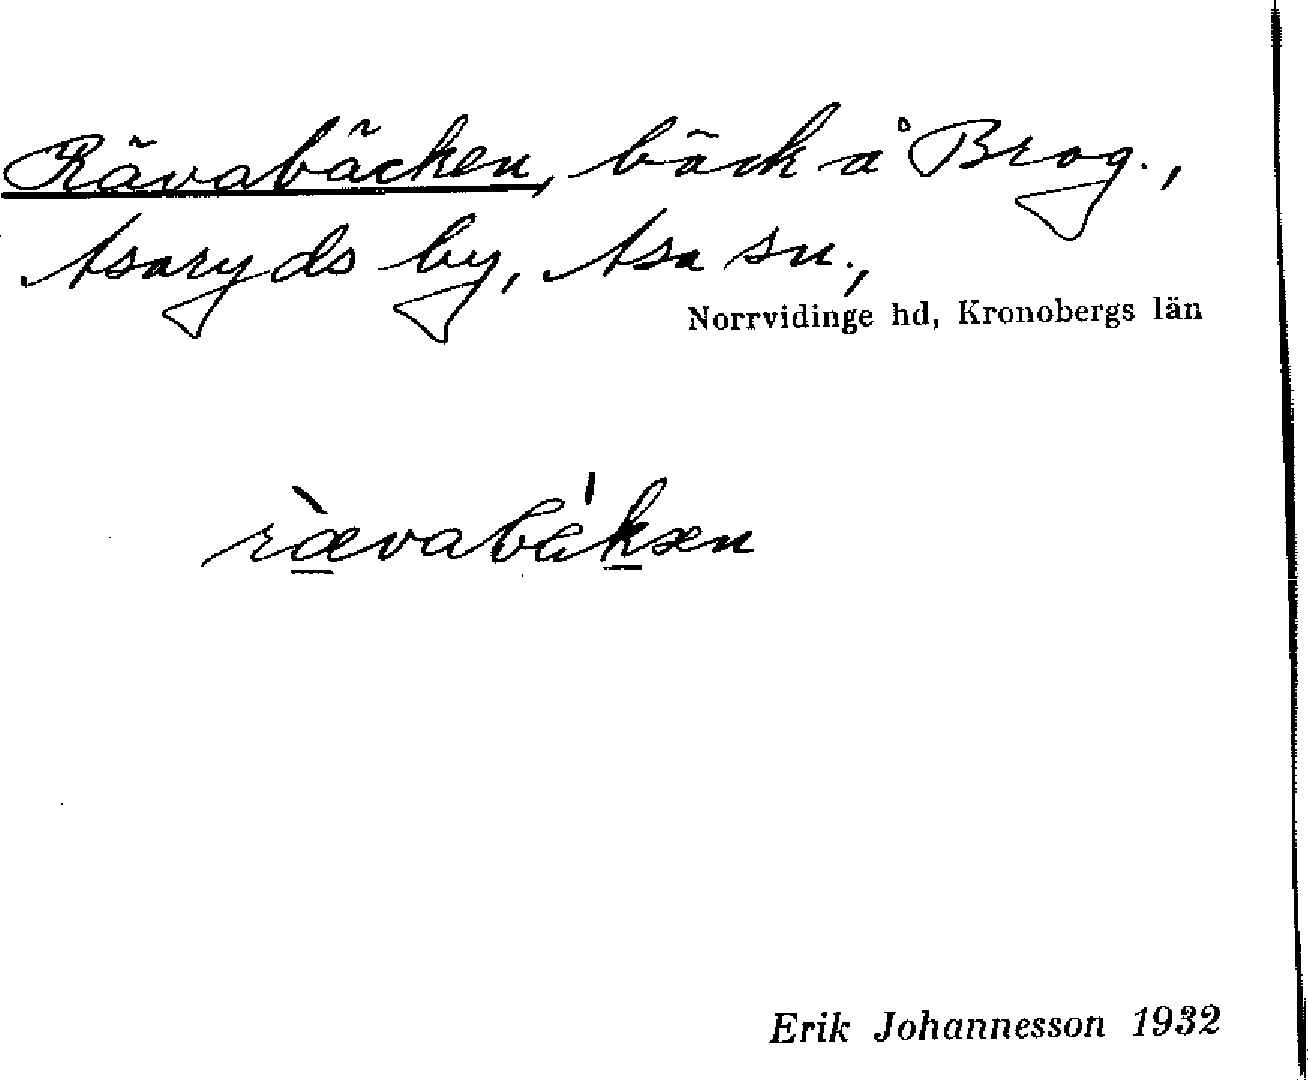 Rävabäcken, bäck å Brog.,
Asaryds by, Asa sn.,
Norrvidinge hd, Kronobergs län
rævabäkæn
Erik Johannesson 1932